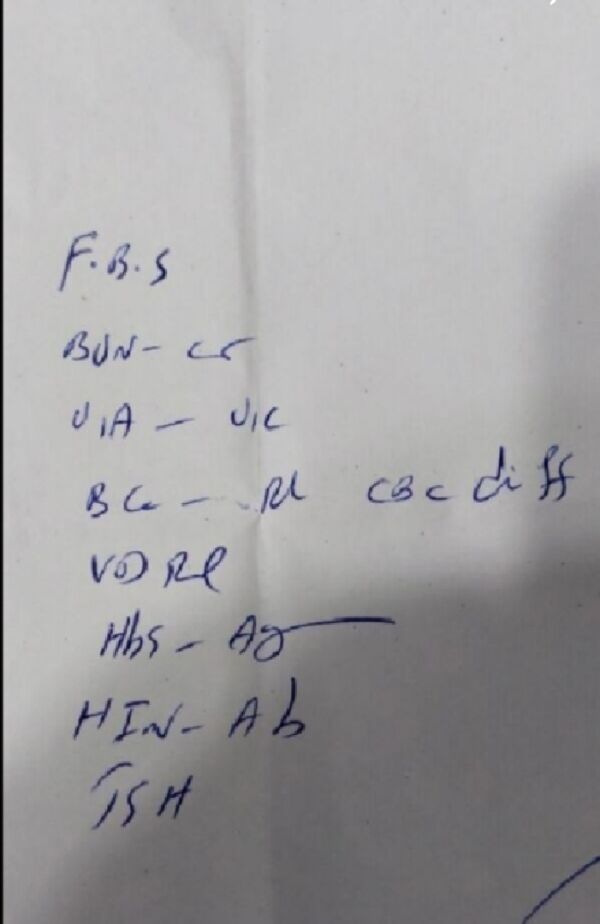 F.B.S
BUN - Cr
U/A - U/C
BG - Rh CBC diff
VDRL
HbS - Ag
HIV - Ab
TSH